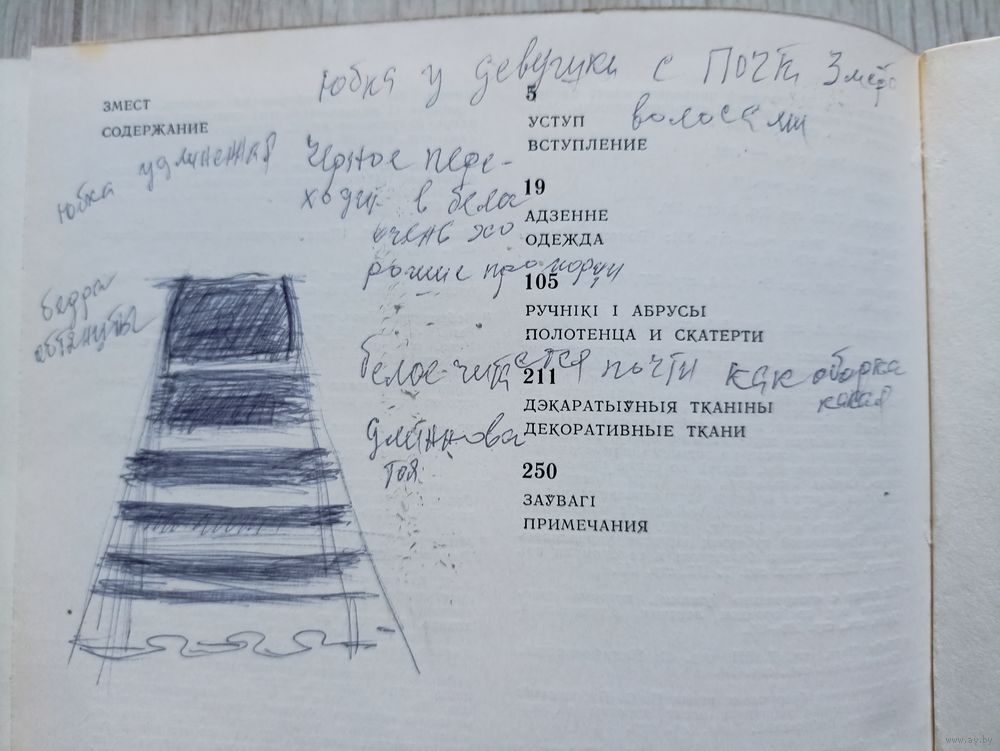 юбка у девушки с почти 3 метр
волосами
ЗМЕСТ
СОДЕРЖАНИЕ
юбка удлиненная
Черное пере-
ходит в бело
очень хо
рошие пропорции
бедра
обтянуты
белое-читается почти как оборка
какая
длиннова
тая
5
УСТУП
ВСТУПЛЕНИЕ
19
АДЗЕННЕ
ОДЕЖДА
105
РУЧНІКІ І АБРУСЫ
ПОЛОТЕНЦА И СКАТЕРТИ
211
ДЭКАРАТЫЎНЫЯ ТКАНІНЫ
ДЕКОРАТИВНЫЕ ТКАНИ
250
ЗАЎВАГІ
ПРИМЕЧАНИЯ
www.ay.by